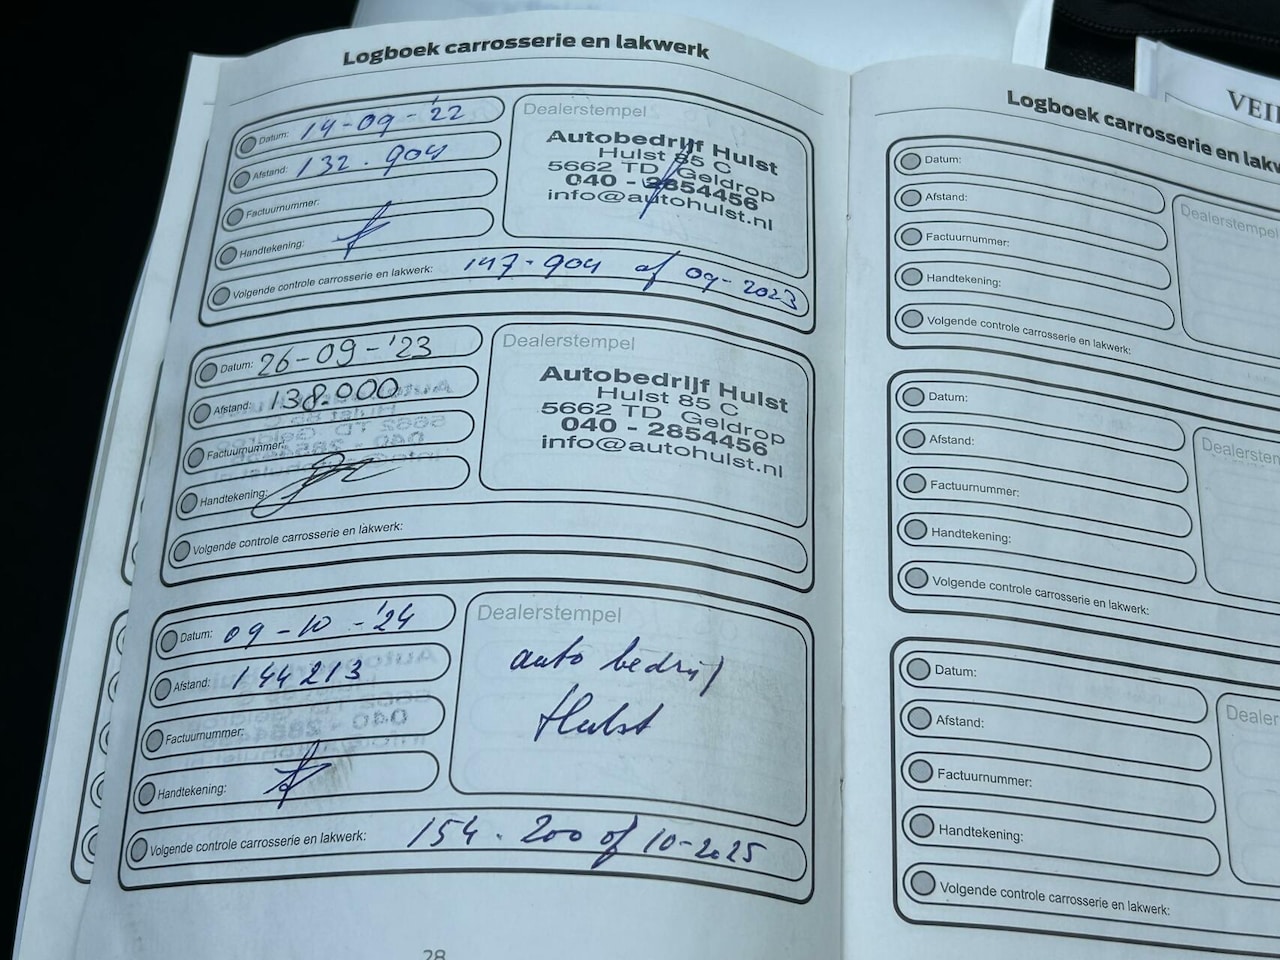 Logboek carrosserie en lakwerk
Datum: 14-09-'22
Afstand: 132.904
Factuurnummer:
Handtekening:
Dealerstempel
Autobedrijf Hulst
Hulst 85 C
5662 TD Geldrop
040 - 2854456
info@autohulst.nl
Volgende controle carrosserie en lakwerk: 147.904 of 09-2023
Datum: 26-09-'23
Afstand: 138.000
Factuurnummer:
Handtekening:
Dealerstempel
Autobedrijf Hulst
Hulst 85 C
5662 TD Geldrop
040 - 2854456
info@autohulst.nl
Volgende controle carrosserie en lakwerk:
Datum: 09-10-'24
Afstand: 144213
Factuurnummer:
Handtekening:
Dealerstempel
auto bedrijf
Hulst
Volgende controle carrosserie en lakwerk: 154.200 of 10-2025
28
Logboek carrosserie en lakw
Datum:
Afstand:
Factuurnummer:
Handtekening:
Dealerstempel
Volgende controle carrosserie en lakwerk:
Datum:
Afstand:
Factuurnummer:
Handtekening:
Dealerstem
Volgende controle carrosserie en lakwerk:
Datum:
Afstand:
Factuurnummer:
Handtekening:
Dealer
Volgende controle carrosserie en lakwerk:
VEI